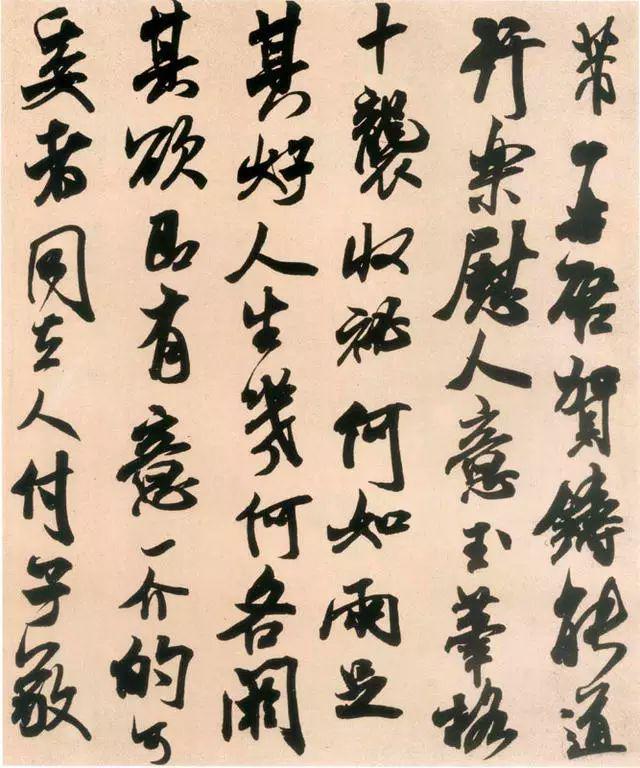 芾再啓賀鑄能道
行樂慰人意玉筆格
十襲收祕何如兩足
其好人生幾何各閼
其欲即有意一介的可
委者同去人付子敬